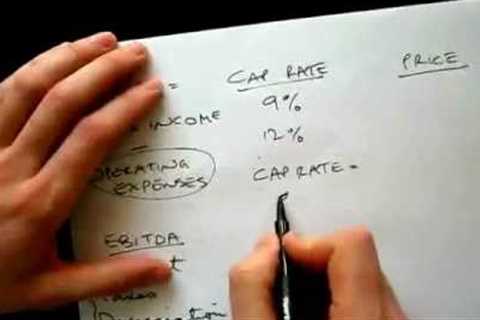 CAP RATE
PRICE
=
9%
INCOME
12%
-
OPERATING
EXPENSES
CAP RATE =
EBITDA